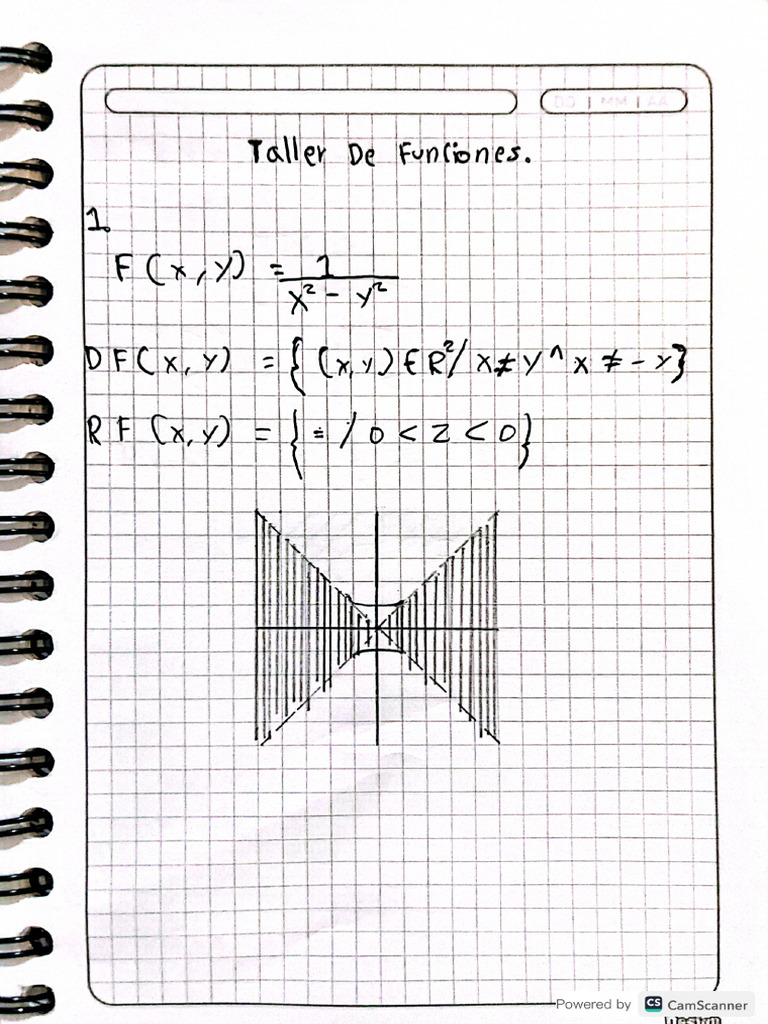 AA | MM | DD
Taller De Funciones.
1.
F (x, y) = 1 / x² - y²
DF(x, y) = { (x, y) ∈ R² / x ≠ y ^ x ≠ - y}
RF (x, y) = { = / 0 < z < 0}
Powered by CS CamScanner